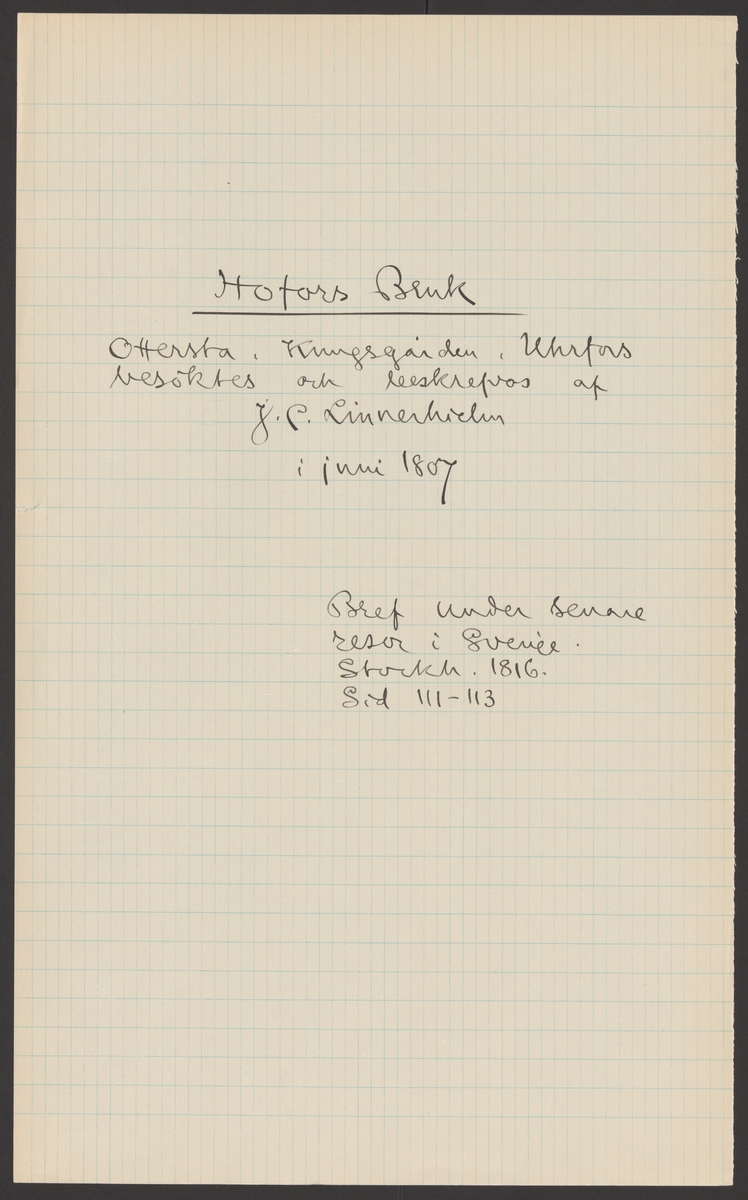 Hofors Bruk
Ottersta, Kungsgården, Uhrfors
besöktes och beskrefvos af
J. C. Linnerhielm
i juni 1807
Bref under senare
resor i Sverige.
Stockh. 1816.
Sid 111-113